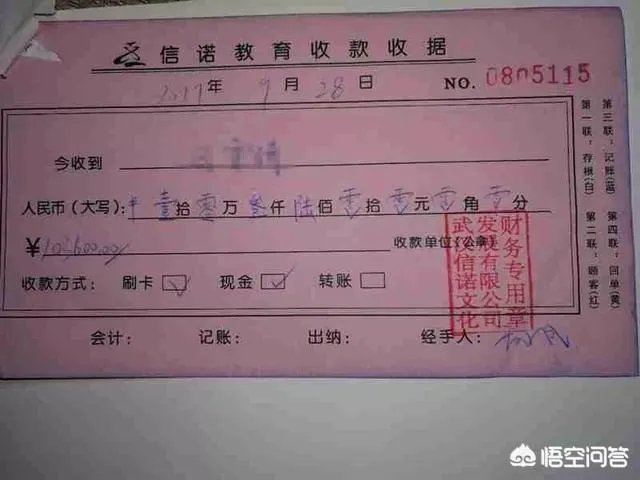 信诺教育收款收据
2017年 9月 28日 NO. 0805115
今收到
人民币（大写）：壹拾零万叁仟陆佰零拾零元零角零分
￥103600.00 收款单位（公章）
收款方式： 刷卡 ☑ 现金 ☑ 转账 □
会计： 记账： 出纳： 经手人：
财务专用章
发展有限公司
武汉信诺文化
第一联：存根(白) 第二联：顾客(红)
第三联：记账(蓝) 第四联：回单(黄)
悟空问答